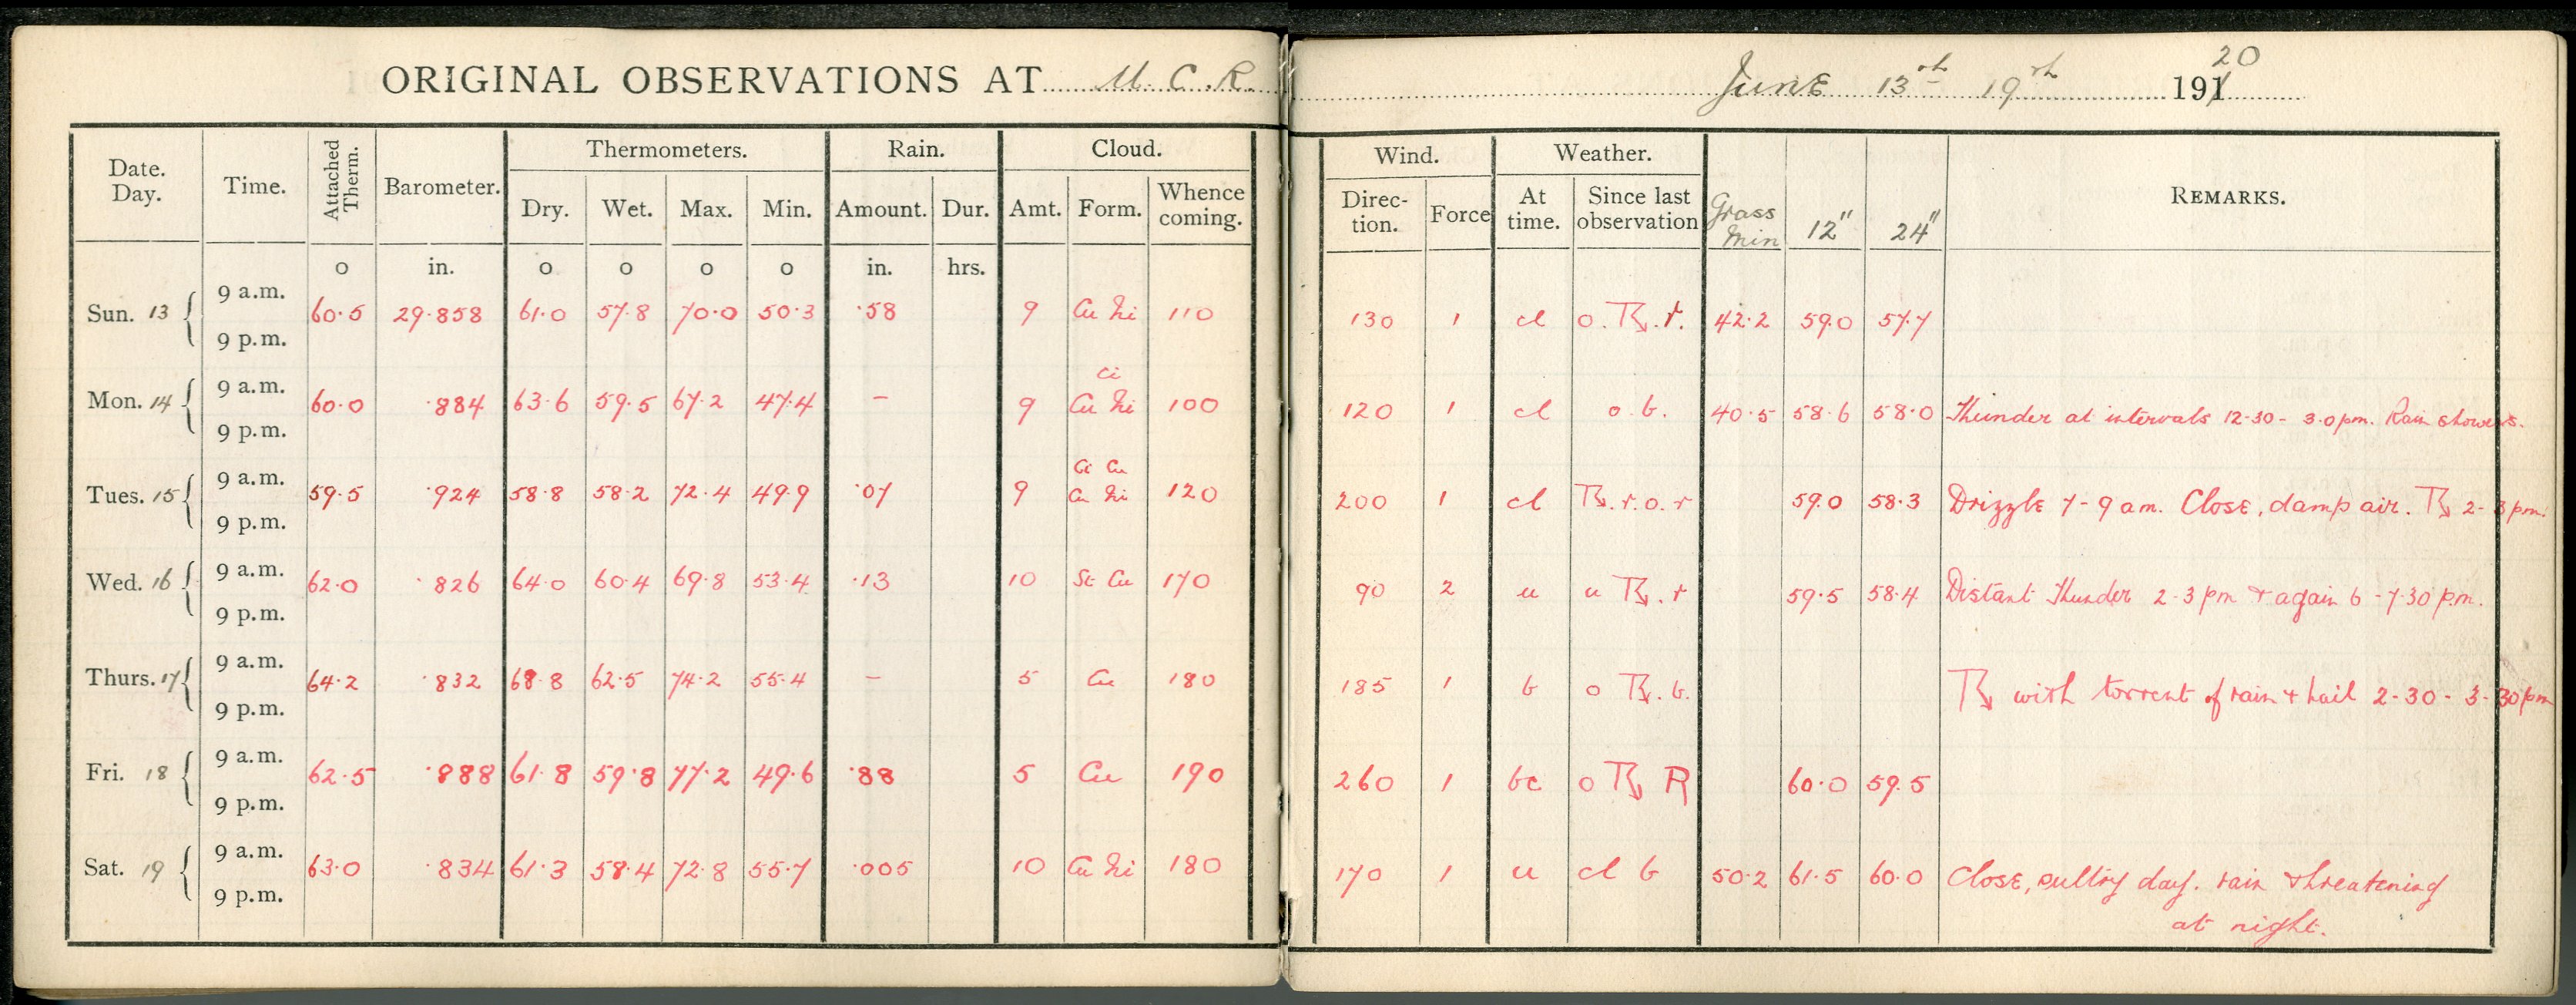 ORIGINAL OBSERVATIONS AT M. C. R. June 13th 19th 1920
Date. Day. Time. Attached Therm. Barometer. Thermometers. Rain. Cloud. Wind. Weather. REMARKS.
Dry. Wet. Max. Min. Amount. Dur. Amt. Form. Whence coming. Direction. Force At time. Since last observation Grass Min 12" 24"
o in. o o o o in. hrs.
Sun. 13 9 a.m. 60.5 29.858 61.0 57.8 70.0 50.3 .58 9 Cu Ni 110 130 1 cl 42.2 59.0 57.7
9 p.m.
Mon. 14 9 a.m. 60.0 .884 63.6 59.5 67.2 47.4 – 9 Ci Cu Ni 100 120 1 cl o. b. 40.5 58.6 58.0 Thunder at intervals 12-30 - 3.0 pm. Rain showers.
9 p.m.
Tues. 15 9 a.m. 59.5 .924 58.8 58.2 72.4 49.9 .07 9 Ci Cu Cu Ni 120 200 1 cl 59.0 58.3 Drizzle 7-9 am. Close, damp air. 2-3 pm.
9 p.m.
Wed. 16 9 a.m. 62.0 .826 64.0 60.4 69.8 53.4 .13 10 St Cu 170 90 2 u 59.5 58.4 Distant Thunder 2-3 pm + again 6-7.30 p.m.
9 p.m.
Thurs. 17 9 a.m. 64.2 .832 68.8 62.5 74.2 55.4 – 5 Cu 180 185 1 b with torrent of rain + hail 2-30 - 3-30 pm
9 p.m.
Fri. 18 9 a.m. 62.5 .888 61.8 59.8 77.2 49.6 .88 5 Cu 190 260 1 bc 60.0 59.5
9 p.m.
Sat. 19 9 a.m. 63.0 .834 61.3 58.4 72.8 55.7 .005 10 Cu Ni 180 170 1 u cl b 50.2 61.5 60.0 Close, sultry day. rain threatening
9 p.m. at night.